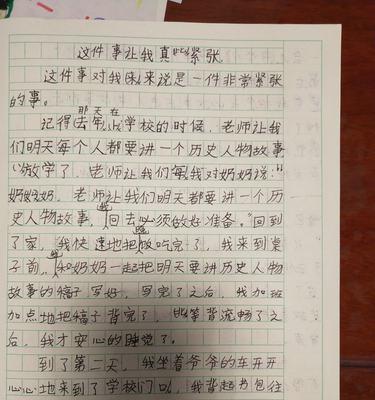 这件事让我真紧张
这件事对我来说是一件非常紧张
的事。
那天在
记得去学校的时候，老师让我
们明天每个人都要讲一个历史人物故事
放学了，老师让我们我对奶奶说："
奶奶奶奶，老师让我们明天都要讲一个历
史人物故事，回去必须做好准备。"回到
了家，我快速地把饭吃完了，我来到桌
子前，和奶奶一起把明天要讲历史人物
故事的稿子写好，写完了之后，我加班
加点地把稿子背完了，等背流畅了之
后，我才安心的睡觉了。
到了第二天，我坐着爷爷的车开开
心心地来到了学校门口，我背起书包往